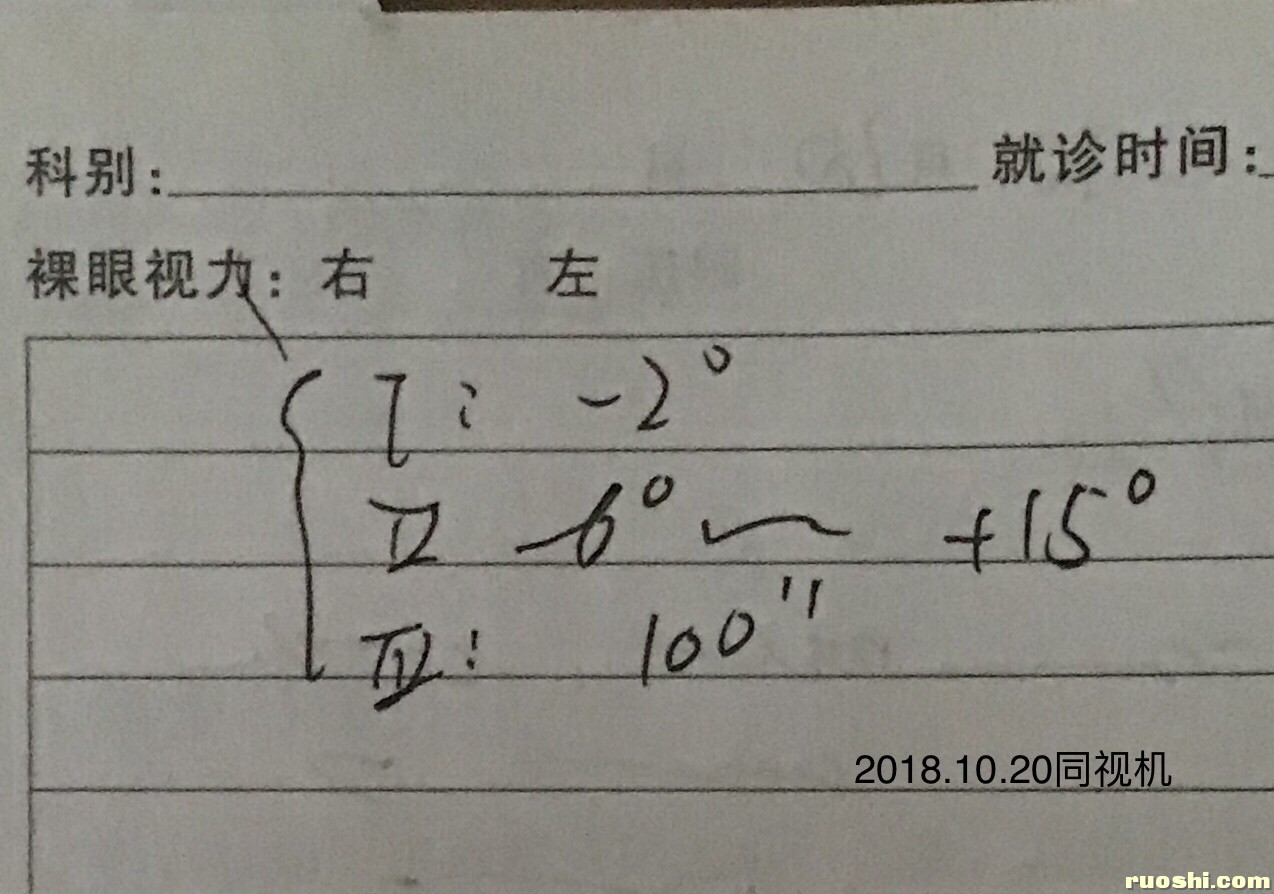 科别： 就诊时间：
裸眼视力：右 左
I： -2°
II -6° ~ +15°
III： 100"
2018.10.20同视机
ruoshi.com